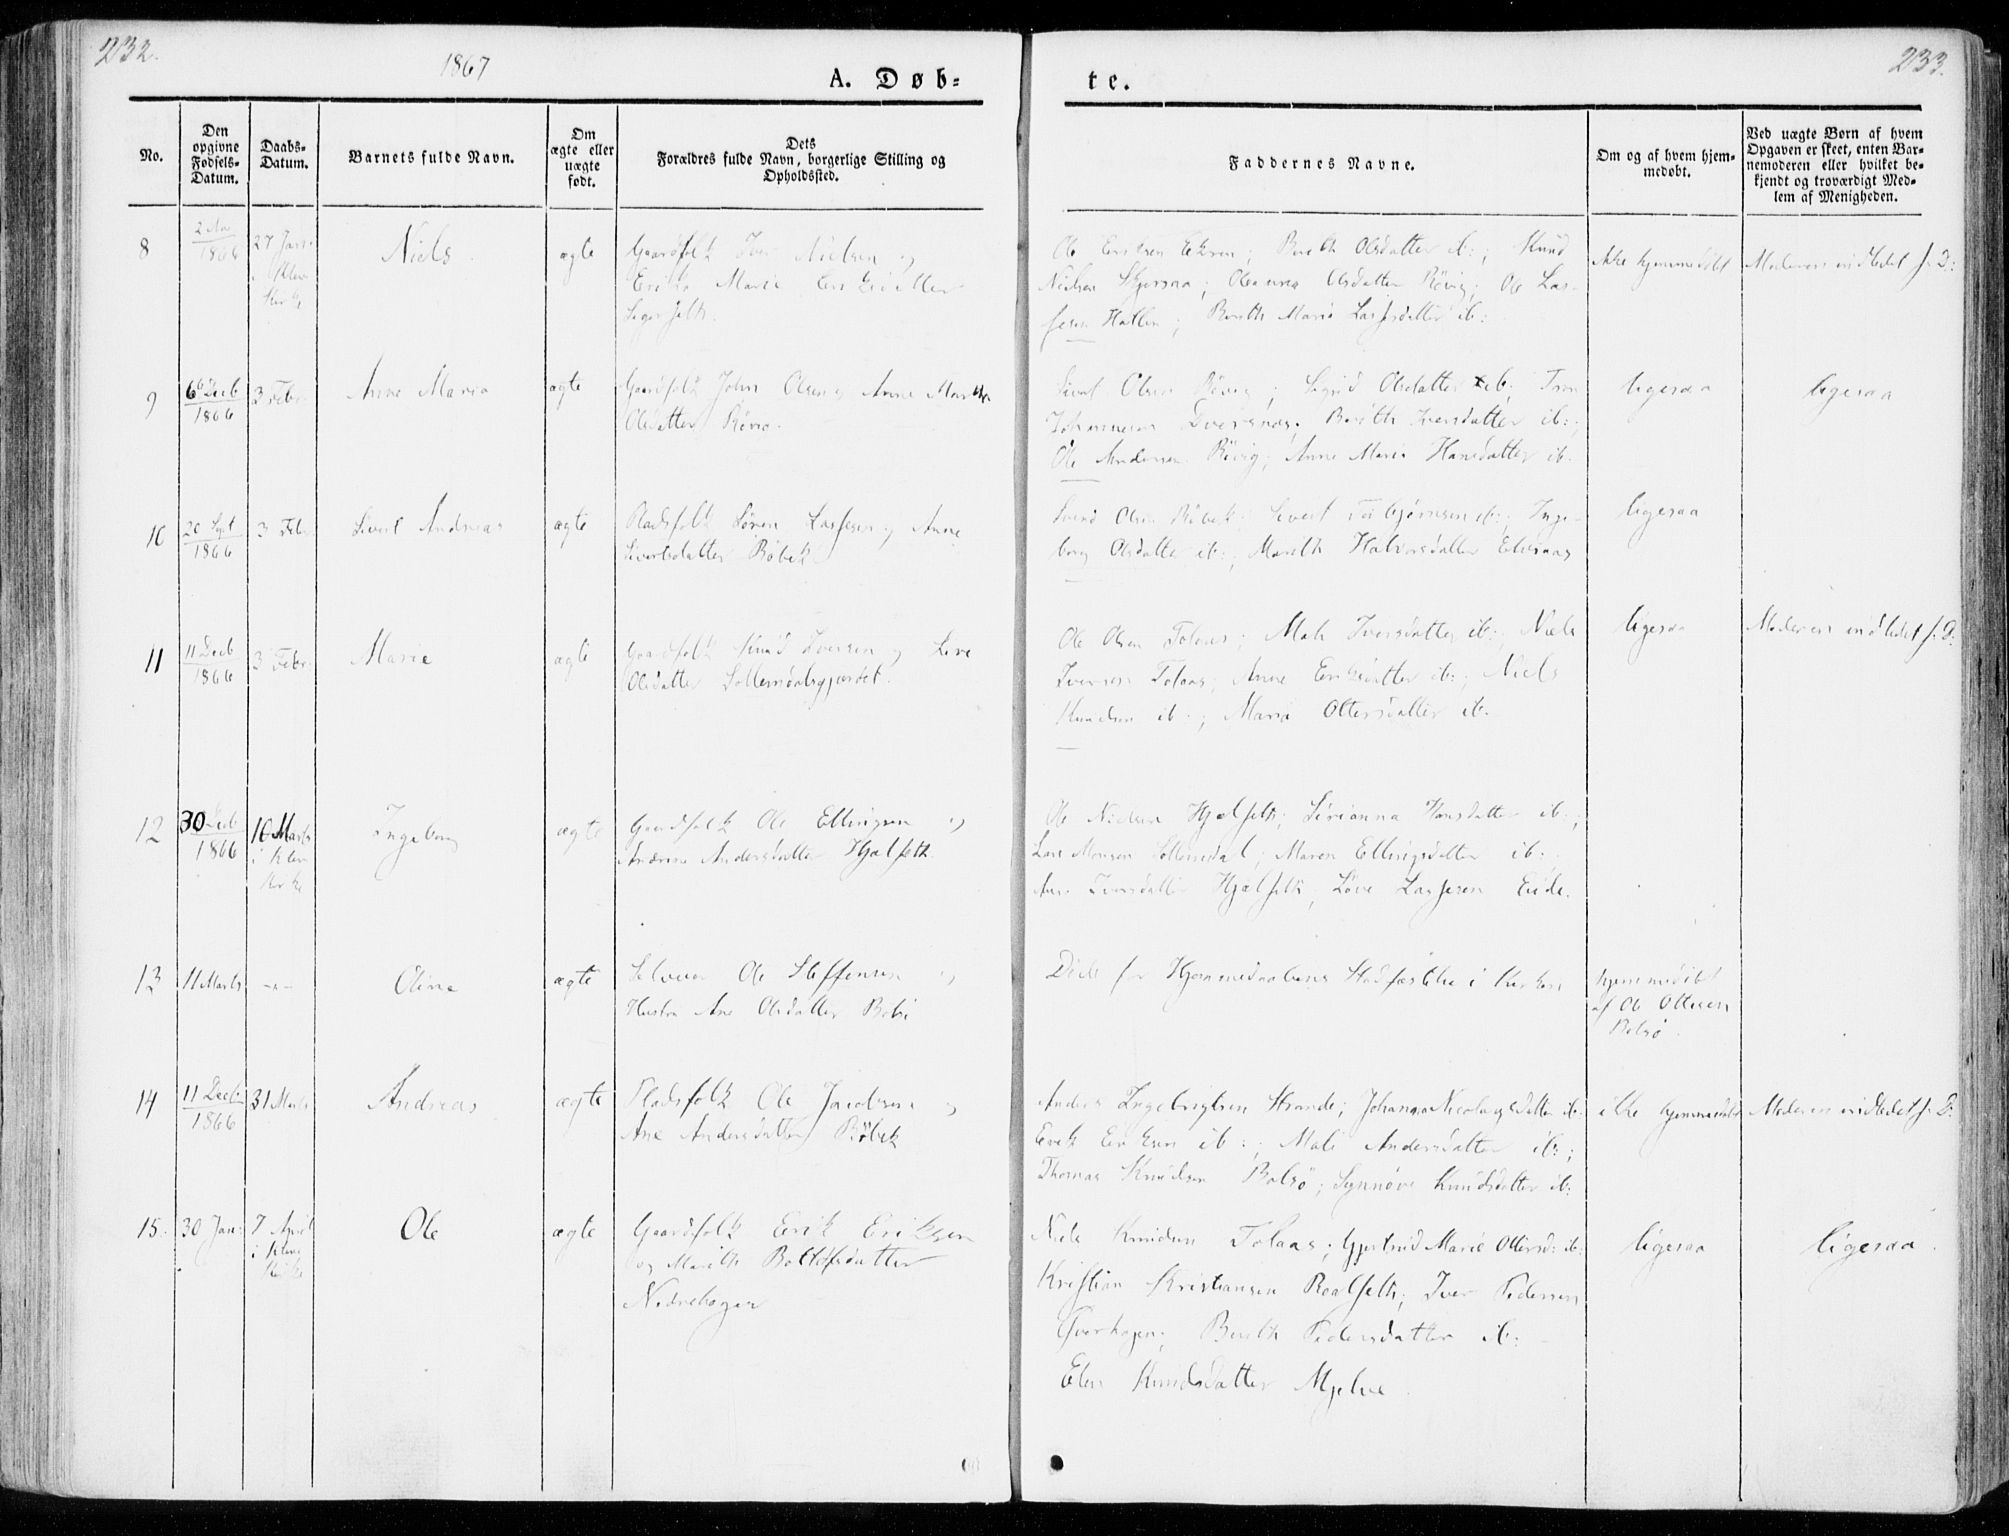 232.
1867
A. Døb=
te.
233.
No.
Den opgivne Fødsels-Datum.
Daabs-Datum.
Barnets fulde Navn.
Om ægte eller uægte født.
Dets Forældres fulde Navn, borgerlige Stilling og Opholdssted.
Faddernes Navne.
Om og af hvem hjemmedøbt.
Ved uægte Børn af hvem Opgaven er skeet, enten Barnemoderen eller hvilket bekjendt og troværdigt Medlem af Menigheden.
8
1866
27 Jan:
i Klev
Kirke
Niels
ægte
Gaardfolk Iver Nielsen og
Marie Eriksdatter
Ole Eriksen Ekren; Berith Olsdatter ib:; Knud
Nielsen; Oleanna Olsdatter Røvig; Ole Las-
sesen Hallen; Berith Maria Lassesdatter ib:
ikke hjemmedøbt
Moderen indledet s. D:
9
6 Decb
1866
3 Febr
Anne Maria
ægte
Gaardfolk John Olsen og Anne Martha
Olsdatter Røvig.
Sivert Olsen Røvig; Sigrid Olsdatter ib:
Johannesen; Berith Iversdatter ib:;
Ole Andersen Røvig; Anne Maria Hansdatter ib.
ligesaa
ligesaa
10
20 Spt
1866
3 Febr
Sivert Andreas
ægte
Pladsfolk Søren Lassesen og Anne
Sivertsdatter Røbek
Svend Olsen Røbek; Sivert Torbjørnsen ib:; Inge-
borg Olsdatter ib:; Marith Halvorsdatter
ligesaa
11
11 Decb
1866
3 Febr.
Marie
ægte
Gaardfolk Knud Iversen og
Olsdatter Sollemdalsgjærdet.
Ole Olsen Tolaas; Mali Iversdatter ib:; Niels
Iversen Tolaas; Anne Eriksdatter ib:; Niels
Knudsen ib:; Maria Ottersdatter ib.
ligesaa
Moderen indledet s. D:
12
30 Decb
1866
10 Marts
i Klev
Kirke
Ingeborg
ægte
Gaardfolk Ole Ellingsen og
Andersdatter Hjelseth.
Ole Nielsen Hjelseth; Sirianna Hansdatter ib:;
Lars Monsen Sollemdal; Maren Ellingsdatter ib:
Iversdatter Hjelseth; Lassesen Eide.
13
11 Marts
Oline
ægte
Ole Steffensen og
Hustru Ane Olsdatter
Døde før Hjemmedaabens Stadfæstelse i Kirken
hjemmedøbt
af Ole Ottesen
Bolsø.
14
11 Decb
1866
31 Marts
Andreas
ægte
Pladsfolk Ole Jacobsen og
Ane Andersdatter Røbek
Anders Ingebrigtsen Strande; Johanna Nicolaysdatter ib:
Erik Eriksen ib:; Mali Andersdatter ib:;
Thomas Knudsen Bolsø; Synnøve Knudsdatter ib:
ikke hjemmedøbt
Moderen indledet s. D:
15.
30 Jan:
7 April
i Klev
Kirke
Ole
ægte
Gaardfolk Erik Eriksen
og Marith Boltofsdatter
Nedrehagen
Niels Knudsen Tolaas; Gjertrud Marie Ottersd: ib.
Kristian Kristiansen Roalseth; Iver Pedersen
Øverhagen; Berith Pedersdatter ib:
Elen Knudsdatter Mjelve.
ligesaa
ligesaa.